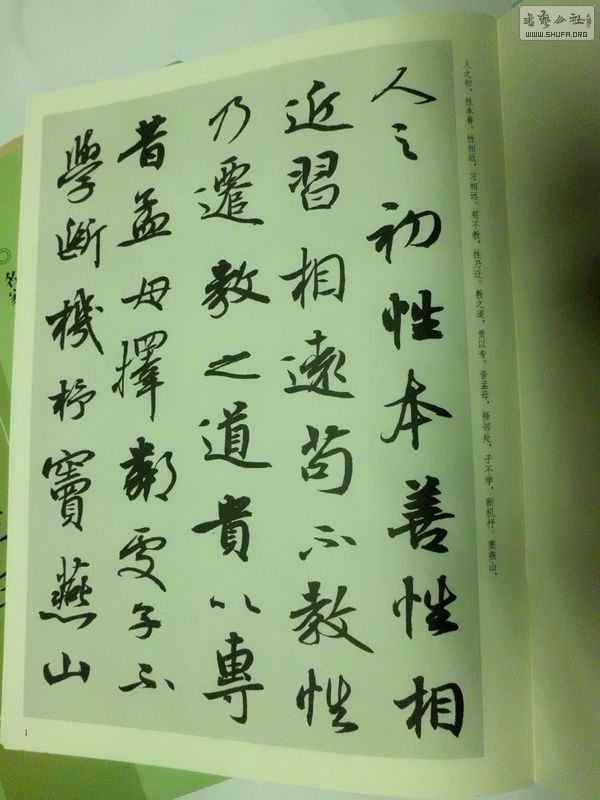 人之初性本善性相
近習相遠苟不教性
乃遷教之道貴以專
昔孟母擇鄰處子不
學斷機杼竇燕山
人之初，性本善。性相近，习相远。苟不教，性乃迁。教之道，贵以专。昔孟母，择邻处，子不学，断机杼。窦燕山，
1
书艺公社
WWW.SHUFA.ORG
名家